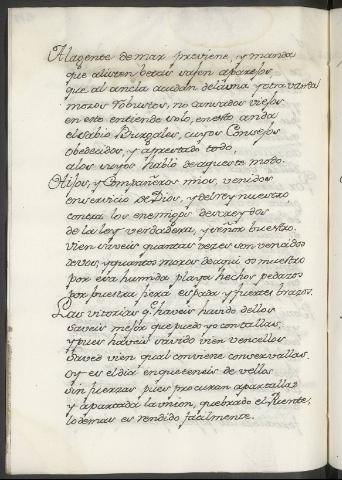 A la gente de mar previene, y manda
que alisten betas sajen aparejos,
que al ancla acudan de la una y otra vanda
mozos robustos, no cansados viejos
en esto entiende solo, en esto anda
el sabio Burgales, cuyos Consejos
obedecidos, y aprestado todo,
a los suyos habló de aqueste modo.
O hijos, y Compañeros mios, venidos
en servicio de Dios, y del rey nuestro,
contra los enemigos descreydos
de la ley verdadera, y señor nuestro.
vien saveis quantas vezes son vencidos
de vos, y quantos moros de aqui os muestro
por esa humida playa hechos pedazos
por vuestra fiera espada y fuertes brazos.
Las vitorias q.e haveis havido dellos
saveis mejor que puedo yo contallas,
y pues haveis savido vien vencellos
saved vien qual conviene conservallas.
oy es el dia en que teneis de vellos
sin fuerzas pues procuran apartallas
y apartada la union, quebrado el Puente,
lo demas es rendido facilmente.